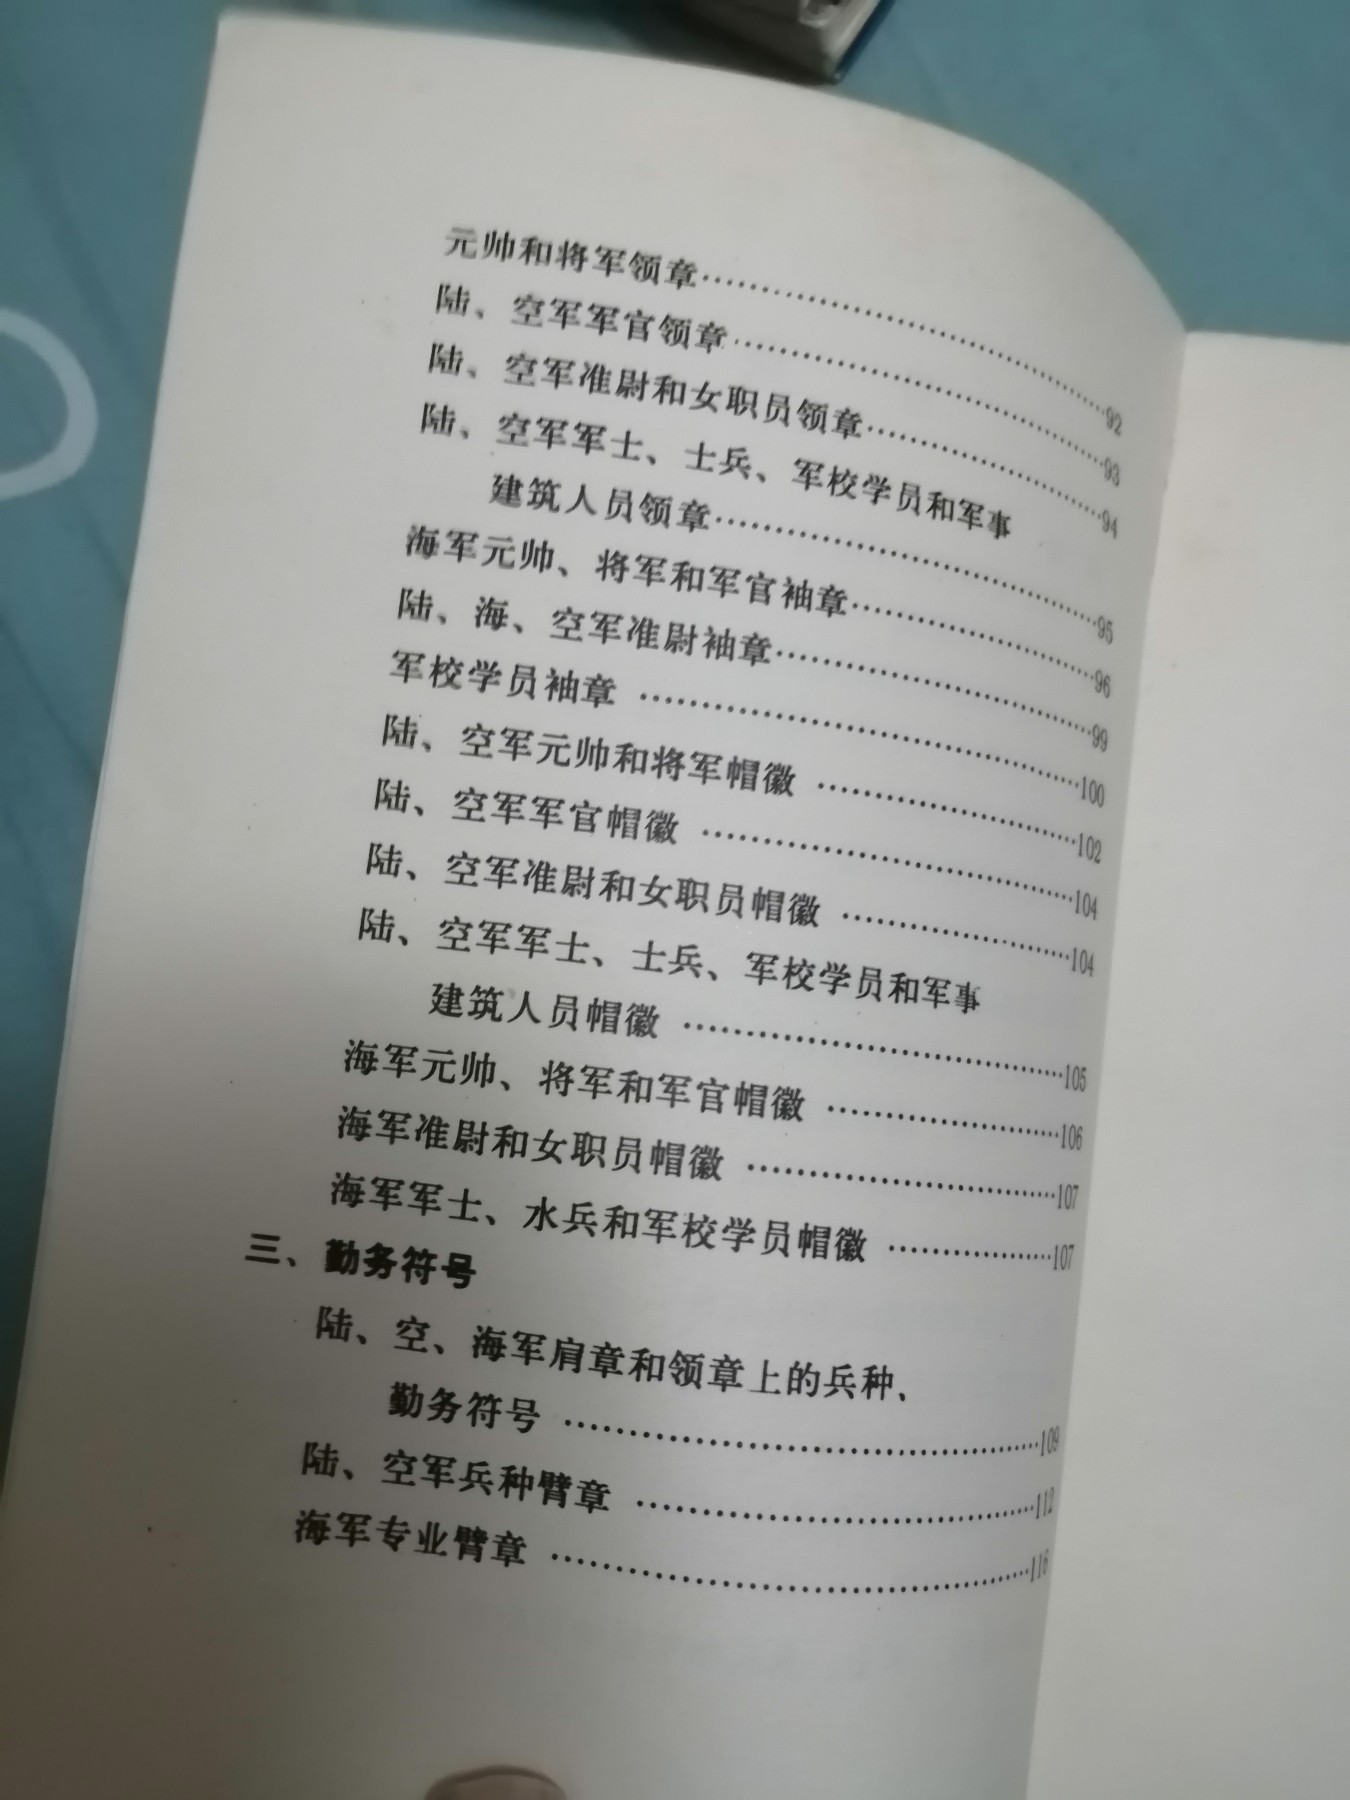 元帅和将军领章……………………92
陆、空军军官领章……………………93
陆、空军准尉和女职员领章……………………94
陆、空军军士、士兵、军校学员和军事
建筑人员领章……………………95
海军元帅、将军和军官袖章……………………96
陆、海、空军准尉袖章……………………99
军校学员袖章……………………100
陆、空军元帅和将军帽徽……………………102
陆、空军军官帽徽……………………104
陆、空军准尉和女职员帽徽……………………104
陆、空军军士、士兵、军校学员和军事
建筑人员帽徽……………………105
海军元帅、将军和军官帽徽……………………106
海军准尉和女职员帽徽……………………107
海军军士、水兵和军校学员帽徽……………………107
三、勤务符号
陆、空、海军肩章和领章上的兵种、
勤务符号……………………109
陆、空军兵种臂章……………………112
海军专业臂章……………………116